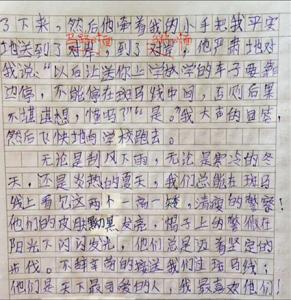 了下来，然后他牵着我的小手把我平安
马路对面 马路对面
地送到了对岸，到了对岸，他严肃地对
我说：“以后让送你上学放学的车子要靠
边停，不能停在斑马线中间，否则后果
不堪设想，懂吗？”“是。”我大声的回答，
然后飞快地向学校跑去。
无论是刮风下雨，无论是寒冷的冬
天，还是炎热的夏天，我们总能在斑马
线上看见这两个高 瘦 的警察！
他们的皮肤黝黑发亮，帽子上的警徽在
阳光下闪闪发光，他们总是迈着坚定的
步伐。不辞辛苦的接送我们过斑马线，
他们是天下最可爱的人，我最喜欢他们！